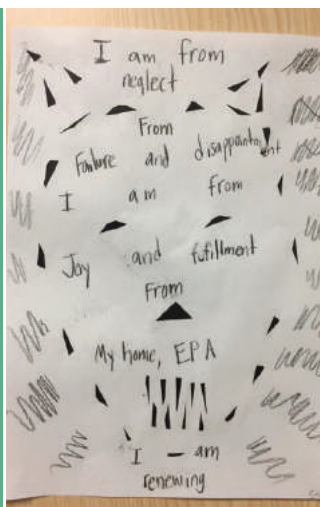 I am from
neglect
From
Failure and disappointment
I am from
Joy and fufillment
From
My home, EPA
I – am
renewing